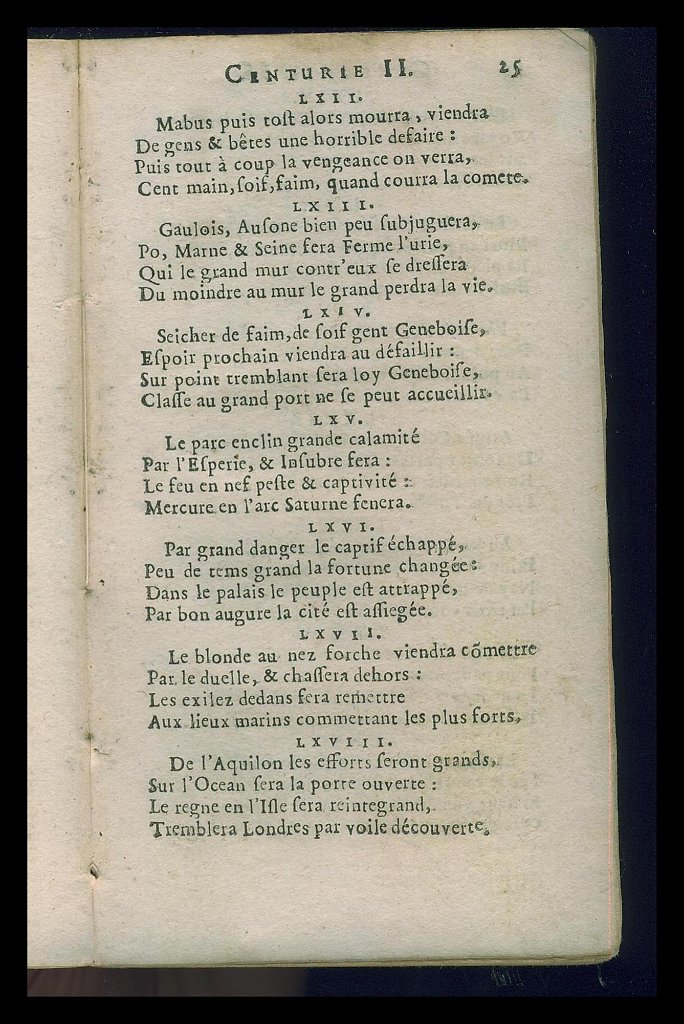 CENTURIE II. 25
LXII.
Mabus puis toſt alors mourra, viendra
De gens & bêtes une horrible defaire :
Puis tout à coup la vengeance on verra,
Cent main, ſoif, faim, quand courra la comete.
LXIII.
Gaulois, Auſone bien peu ſubjuguera,
Po, Marne & Seine fera Ferme l'urie,
Qui le grand mur contr'eux ſe dreſſera
Du moindre au mur le grand perdra la vie.
LXIV.
Seicher de faim, de ſoif gent Geneboiſe,
Eſpoir prochain viendra au défaillir :
Sur point tremblant ſera loy Geneboiſe,
Claſſe au grand port ne ſe peut accueillir.
LXV.
Le parc enclin grande calamité
Par l'Eſperie, & Inſubre fera :
Le feu en nef peſte & captivité :
Mercure en l'arc Saturne fenera.
LXVI.
Par grand danger le captif échappé,
Peu de tems grand la fortune changée :
Dans le palais le peuple eſt attrappé,
Par bon augure la cité eſt aſſiegée.
LXVII.
Le blonde au nez forche viendra cõmettre
Par le duelle, & chaſſera dehors :
Les exilez dedans fera remettre
Aux lieux marins commettant les plus forts.
LXVIII.
De l'Aquilon les efforts ſeront grands,
Sur l'Ocean ſera la porte ouverte :
Le regne en l'Iſle ſera reintegrand,
Tremblera Londres par voile découverte.